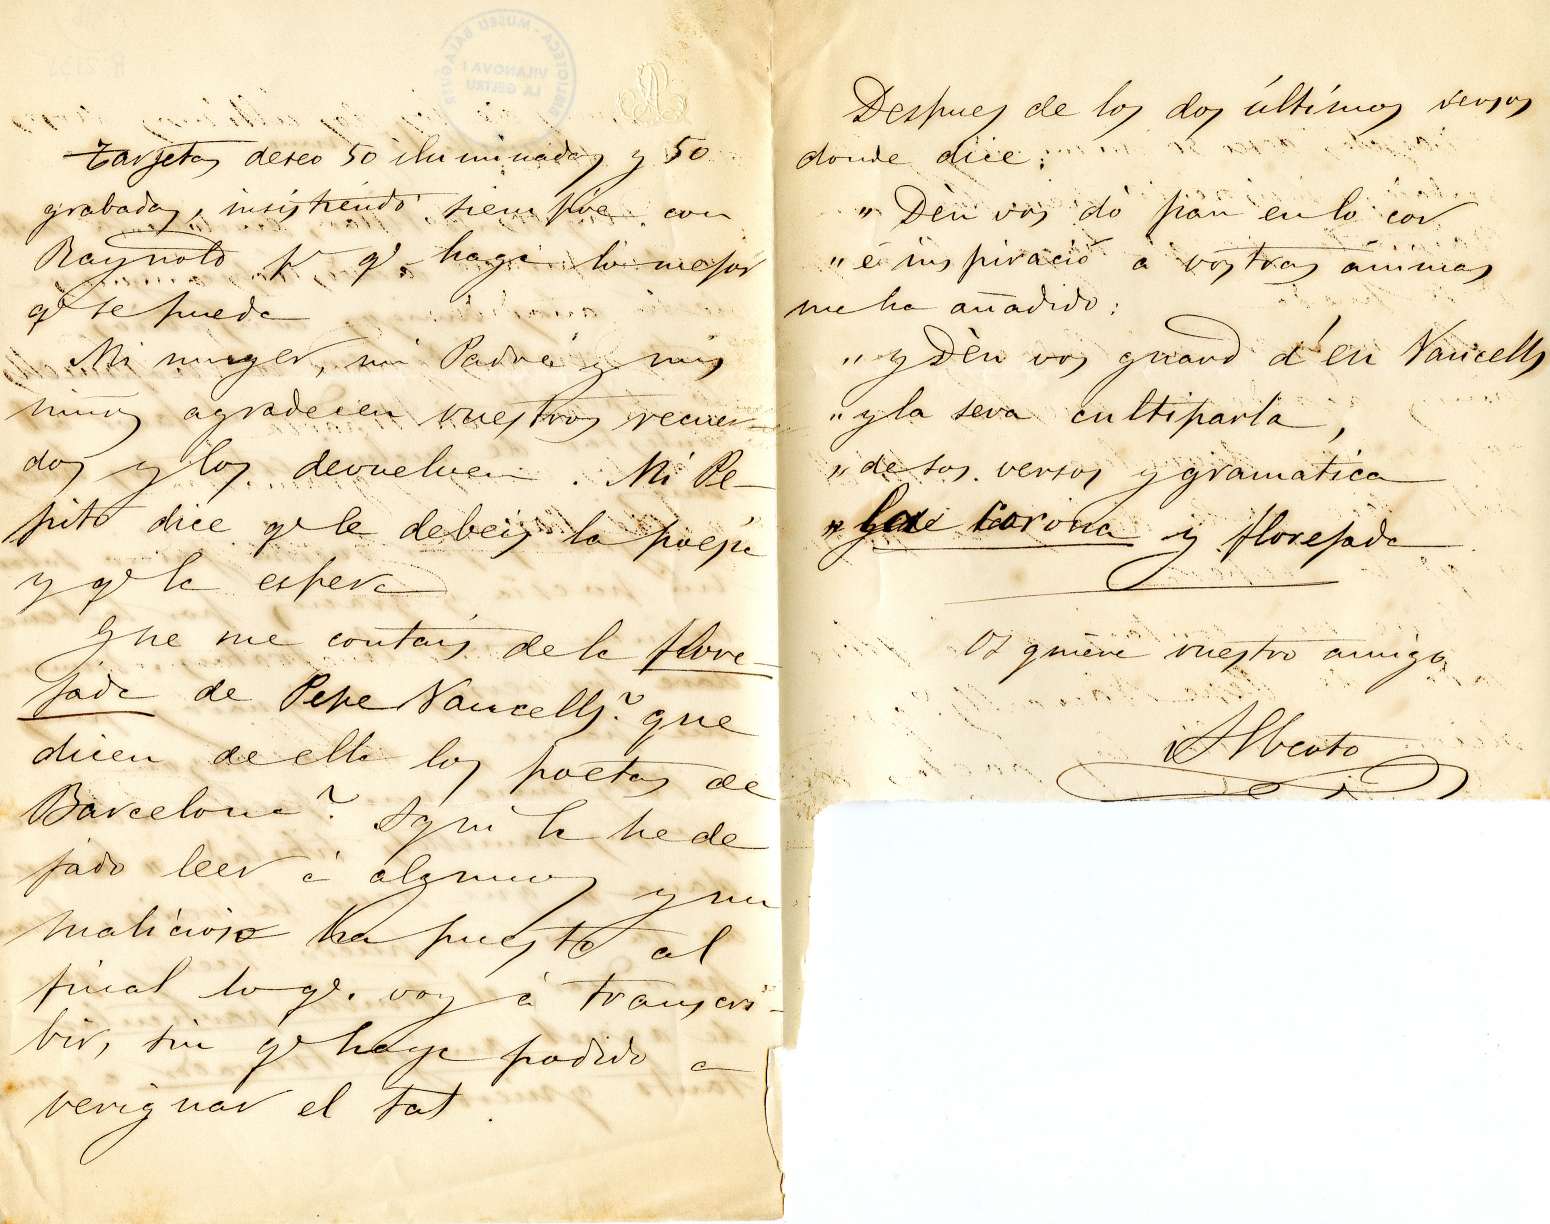 tarjetas deseo 50 iluminadas y 50
grabadas, insistiendo siempre con
Raynold pª qᵉ haga lo mejor
qᵉ se pueda
Mi muger, mi Padre y mis
niños agradecen vuestros recuer-
dos y los devuelven. Mi Pe-
pito dice qᵉ le debeis la poesia
y qᵉ la espera
Que me contais de la flore-
jada de Pepe Vancells? que
dicen de ella los poetas de
Barcelona? Aqui la he de
jado leer á algunos y un
malicioso ha puesto al
final lo qᵉ. voy á transcri-
bir, sin qᵉ haya podido a
verignar el tal.
Despues de los dos últimos versos
donde dice:
" Dèu vos dó pau en lo cor
" é inspiració á vostras ánimas
me ha añadido:
" y Dèu vos guard d'en Vancells
" y la seva cultiparla,
" de sos versos y gramatica
" corona y florejada
Os quiere vuestro amigo,
Alberto
BIBLIOTECA - MUSEU BALAGUER
VILANOVA I
LA GELTRÚ